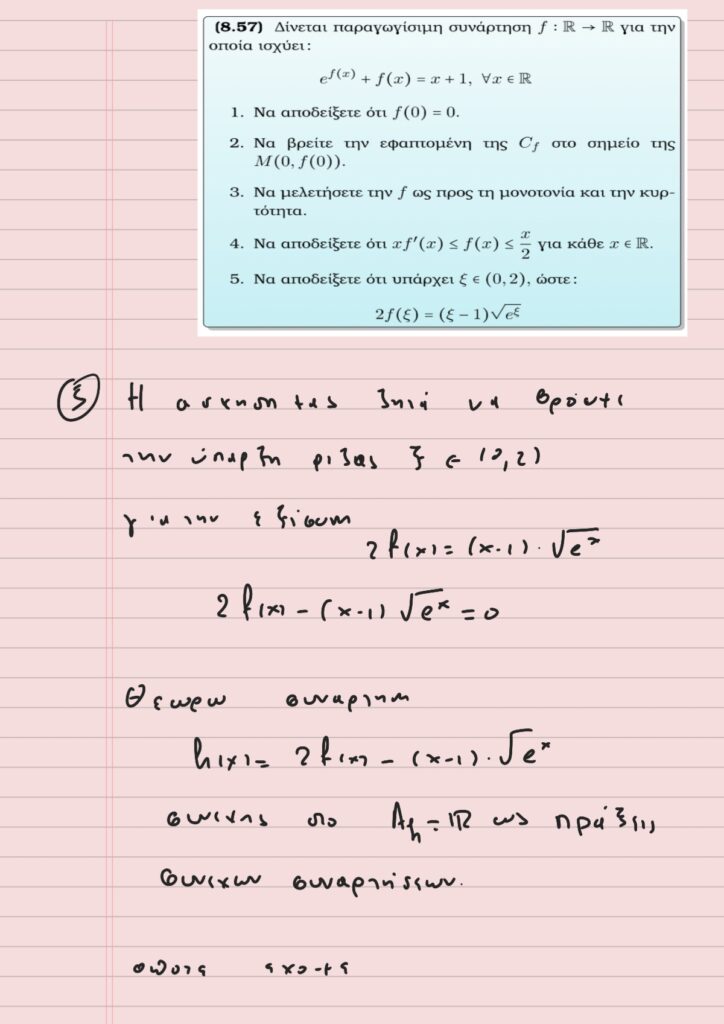 (8.57) Δίνεται παραγωγίσιμη συνάρτηση f : ℝ → ℝ για την
οποία ισχύει:
e^{f(x)} + f(x) = x + 1, ∀x ∈ ℝ
1. Να αποδείξετε ότι f(0) = 0.
2. Να βρείτε την εφαπτομένη της C_f στο σημείο της
M(0, f(0)).
3. Να μελετήσετε την f ως προς τη μονοτονία και την κυρ-
τότητα.
4. Να αποδείξετε ότι xf′(x) ≤ f(x) ≤ x/2 για κάθε x ∈ ℝ.
5. Να αποδείξετε ότι υπάρχει ξ ∈ (0, 2), ώστε:
2f(ξ) = (ξ − 1)√e^ξ
Η ασκηση ζητά να βρούμε
την ύπαρξη ριζας ξ ∈ (0,2)
για την εξίσωση
2f(x) = (x-1)·√e^x
2f(x) - (x-1)√e^x = 0
Θεωρω συναρτηση
h(x) = 2f(x) - (x-1)·√e^x
συνεχης στο A_h = ℝ ως πράξεις
συνεχων συναρτήσεων.
οποτε